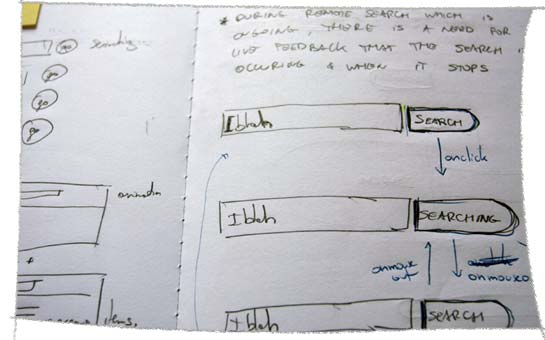 searching
go
go
go
animation
items.
* DURING REMOTE SEARCH WHICH IS
ONGOING, THERE IS A NEED FOR
LIVE FEEDBACK THAT THE SEARCH
OCCURING & WHEN IT STOPS
I blah SEARCH
onclick
I blah SEARCHING
onmouse
out
onmouseo
I blah SEARCH